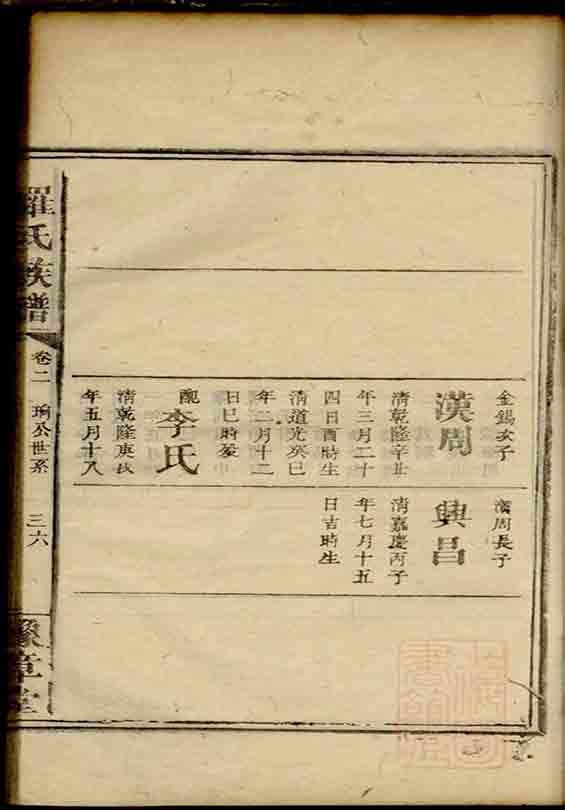 金錫次子
漢周
清乾隆辛丑
年三月二十
四日酉時生
清道光癸巳
年二月十二
日巳時歿
配李氏
清乾隆庚戌
年五月十八
漢周長子
興昌
清嘉慶丙子
年七月十五
日吉時生
羅氏族譜
卷二
公世系
三六
豫章堂